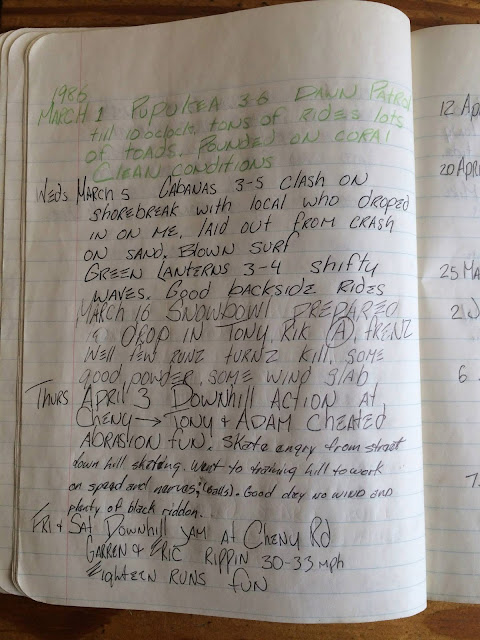 1986
MARCH 1 PUPUKEA 3-6 DAWN PATROL
till 10 oclock. tons of RIDES lots
of TOADS. POUNDED ON CORAL
CLEAN CONDITIONS
WEDS MARCH 5 CABANAS 3-5 CLASH ON
SHOREBREAK WITH LOCAL WHO DROPED
IN ON ME. LAID OUT FROM CRASH
ON SAND. BLOWN SURF
GREEN LANTERNS 3-4 SHIFTY
WAVES. GOOD BACKSIDE RIDES
MARCH 16 SNOWBOWL PREPARED
DROP IN TONY, RIK (A), FRENZ
WELL FEW RUNZ TURNZ KILL. SOME
good powder, some wind slab
THURS APRIL 3 DOWNHILL ACTION AT
CHENY → TONY & ADAM CHEATED
ABRASION FUN! Skate angry from street
down hill skating. Went to training hill to work
on speed and nerves; (balls). Good day no wind and
plenty of black ribbon.
FRI & SAT DOWNHILL JAM AT CHENY RD
GARREN & ERIC RIPPIN 30-33 mph
EIGHTEEN RUNS FUN
12 Ap
20 APRI
25 MA
21 J
6
7